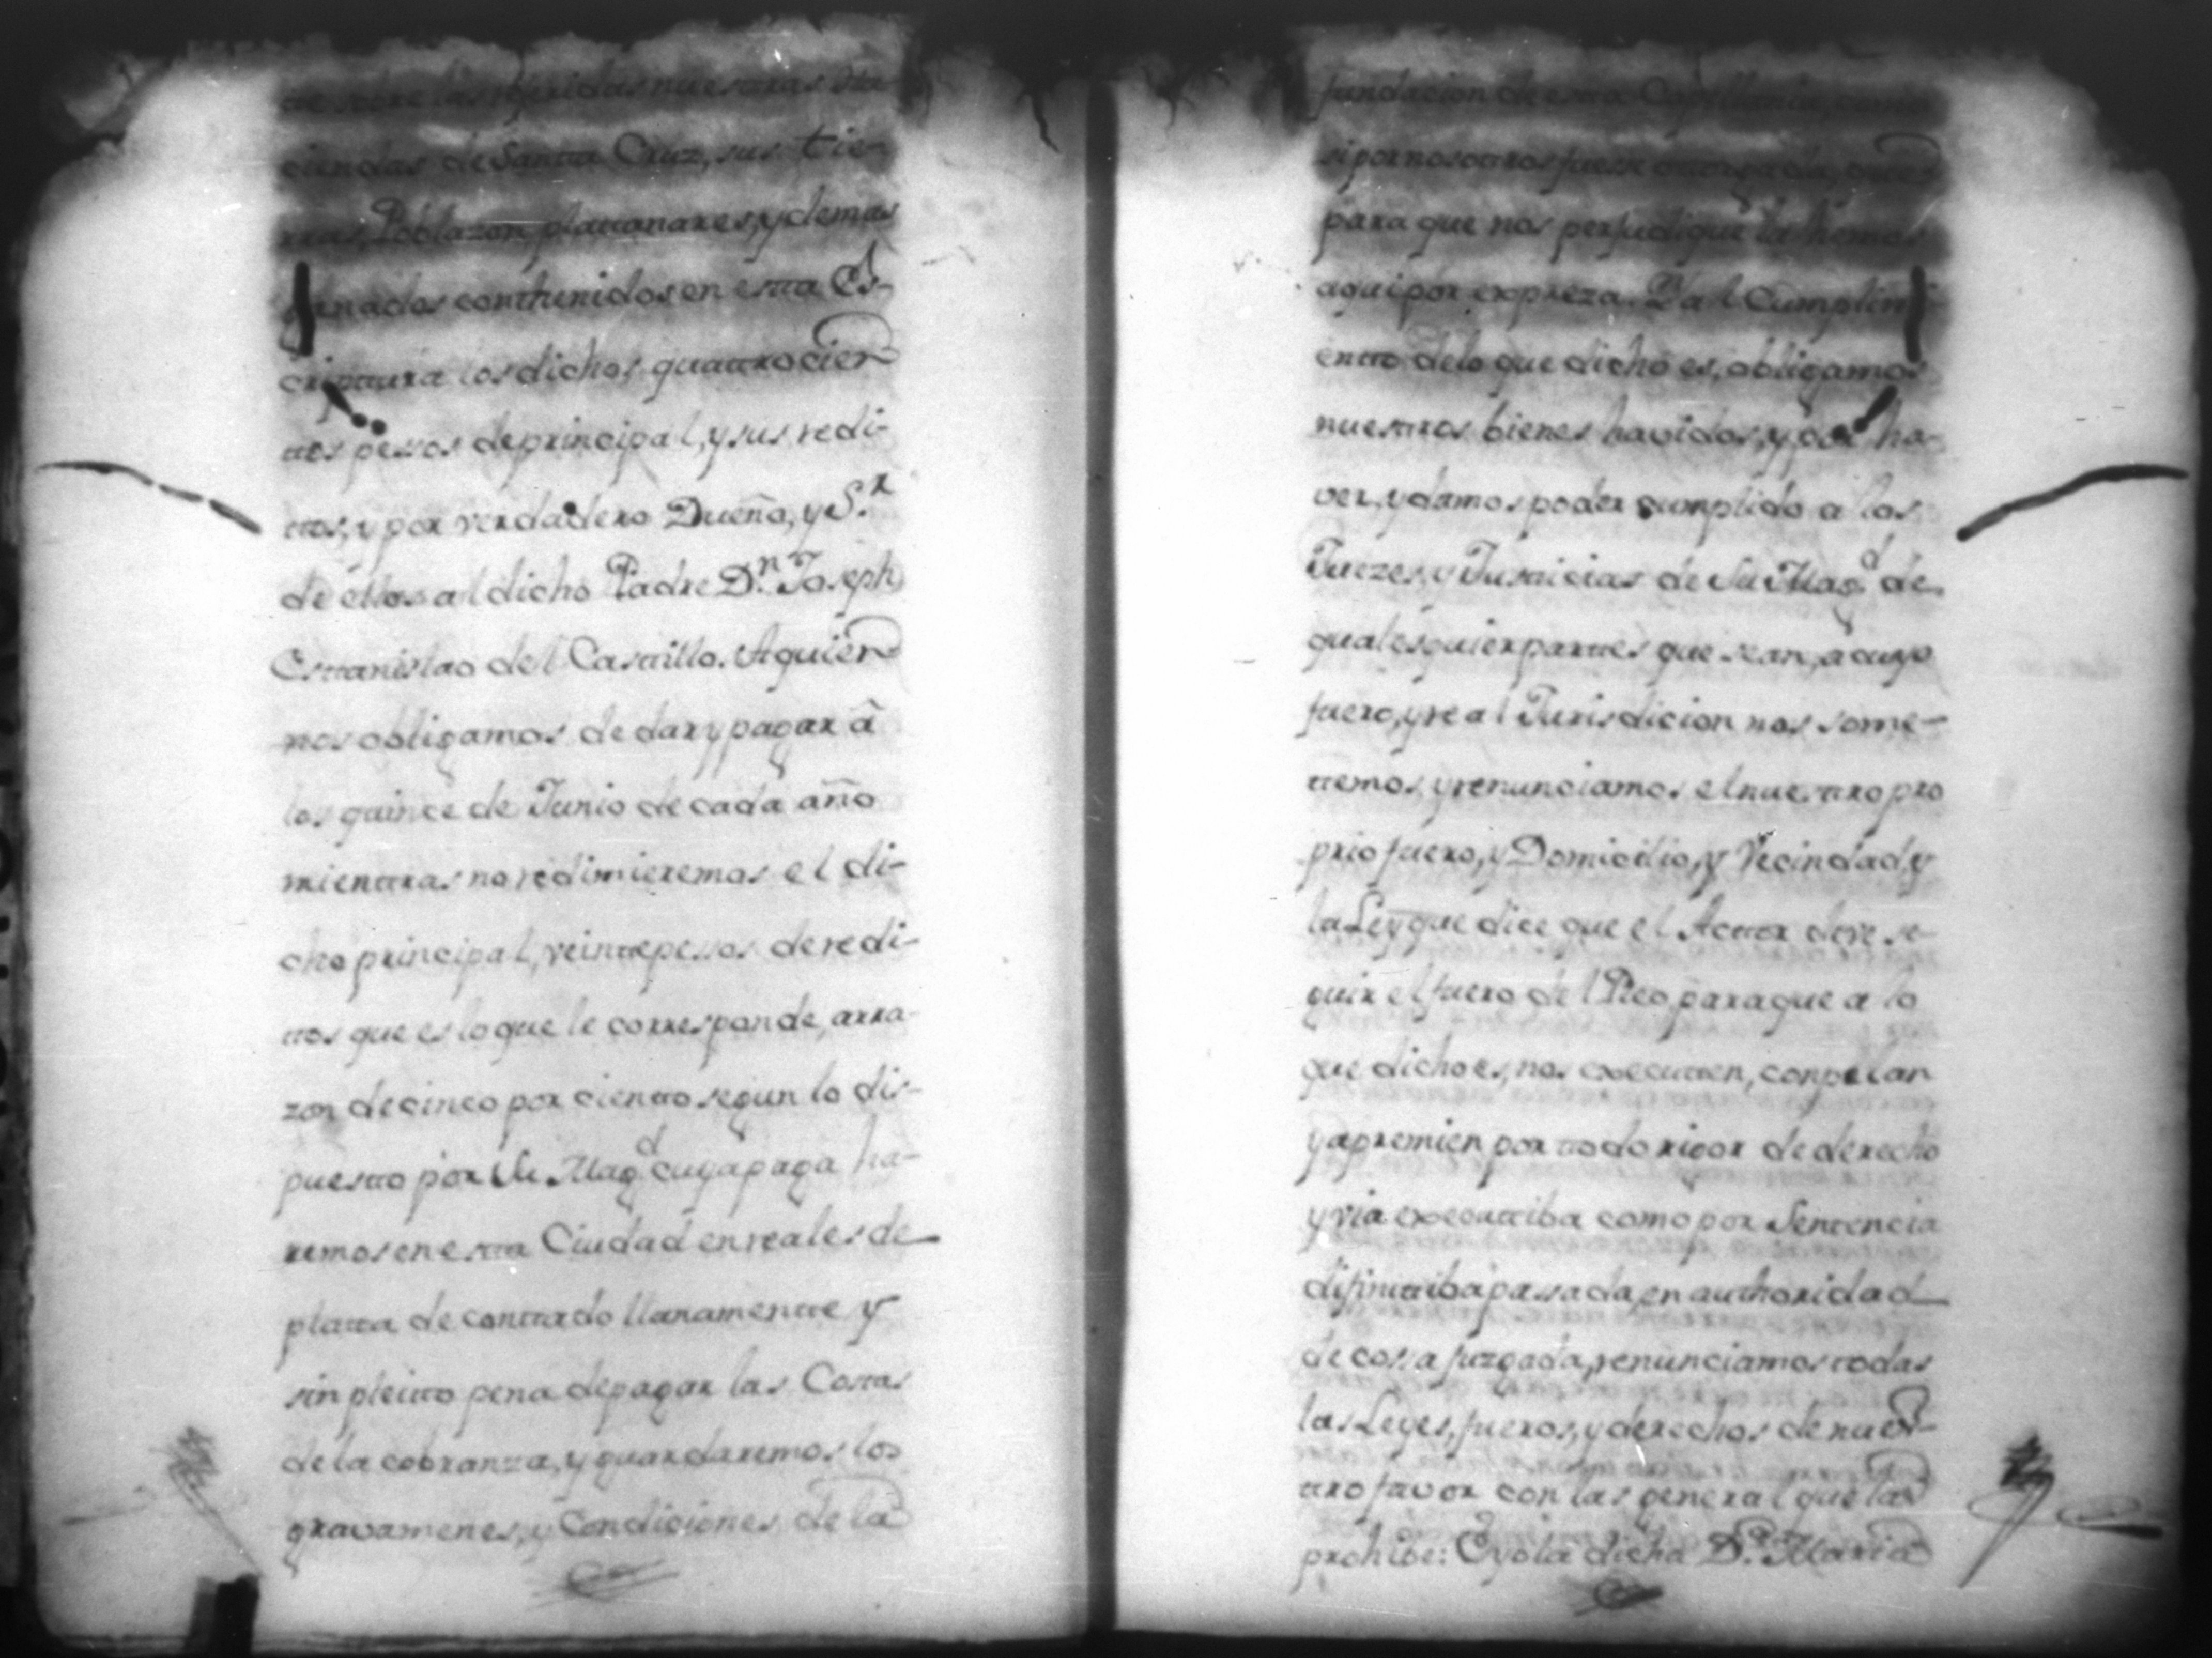 de sobre las referidas nuestras Ha-
ciendas de Santta Cruz, sus tie-
rras, Poblazon, plattanares, y demas
ganados conthenidos en estta Es-
criptura los dichos quattrocien
ttos pessos de principal, y sus redi-
ttos, y por verdadero Dueño, y S.r
de ellos al dicho Padre D.n Joseph
Esttanislao del Casttillo. A quien
nos obligamos de dar y pagar â
los quince de Junio de cada año
mienttras no redimieremos el di-
cho principal, veintte pessos de redi-
ttos que es lo que le corresponde, arra-
zon de cinco por cientto segun lo dis-
puestto por Su Mag.d cuya paga ha-
remos en estta Ciudad en reales de
platta de conttado llanamentte y
sin pleitto pena de pagar las Costtas
de la cobranza, y guardaremos los
gravamenes, y Condiciones de la
fundacion de estta Capellania, como
si por nosottros fuese ottorgada, que
para que nos perjudique la hemos
aqui por expreza. Y a l Cumplim-
entto de lo que dicho es, obligamos
nuesttros bienes havidos, y por ha-
ver, y damos poder cumplido a los
Juezes, y Justticias de Su Mag.d de
qualesquier parttes que sean, a cuyo
fuero, y real Jurisdicion nos some-
ttemos, y renunciamos el nuesttro pro
prio fuero, y Domicilio, y Vecindad y
la Ley que dice que el Acttor deve se-
guir el fuero del Reo para que a lo
que dicho es, nos executten, conpelan
y apremien por ttodo rigor de derecho
y via executtiba como por Sentencia
difinittiba pasada en authoridad
de cossa juzgada, renunciamos ttodas
las Leyes, fueros, y derechos de nues-
ttro favor con la general que las
prohibe: E yo la dicha D.a Maria